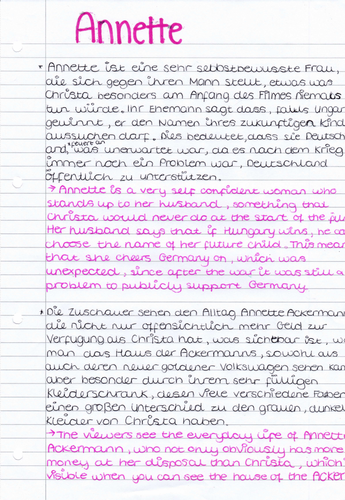 Annette
• Annette ist eine sehr selbstbewusste Frau,
die sich gegen ihren Mann stellt, etwas was
Christa besonders am Anfang des Filmes niemals
tun würde. Ihr Ehemann sagt dass, falls Ungar
gewinnt, er den Namen ihres zukünftigen Kind
aussuchen darf. Dies bedeutet, dass sie Deutsch
feuert an
and, was unerwartet war, da es nach dem Krieg
immer noch ein Problem war, Deutschland
öffentlich zu unterstützen.
→ Annette is a very self confident woman who
stands up to her husband, something that
Christa would never do at the start of the
Her husband says that if Hungary wins, he ca
choose the name of her future child. This mean
that she cheers Germany on, which was
unexpected, since after the war it was still a
problem to publicly support Germany.
• Die Zuschauer sehen den Alltag Annette Ackerman
die nicht nur offensichtlich mehr Geld zur
Verfügung als Christa hat, was sichtbar ist, w
man das Haus der Ackermanns, sowohl als
auch deren neuer goldener Volkswagen sehen kan
aber besonder durch ihrem sehr fülligen
Kleiderschrank, desen viele verschiedene Farben
einen großen Unterschied zu den grauen, dunkel
Kleider von Christa haben.
→ The viewers see the everyday life of Annett
Ackermann, who not only obviously has more
money at her disposal than Christa, which
visible when you can see the house of the Acker